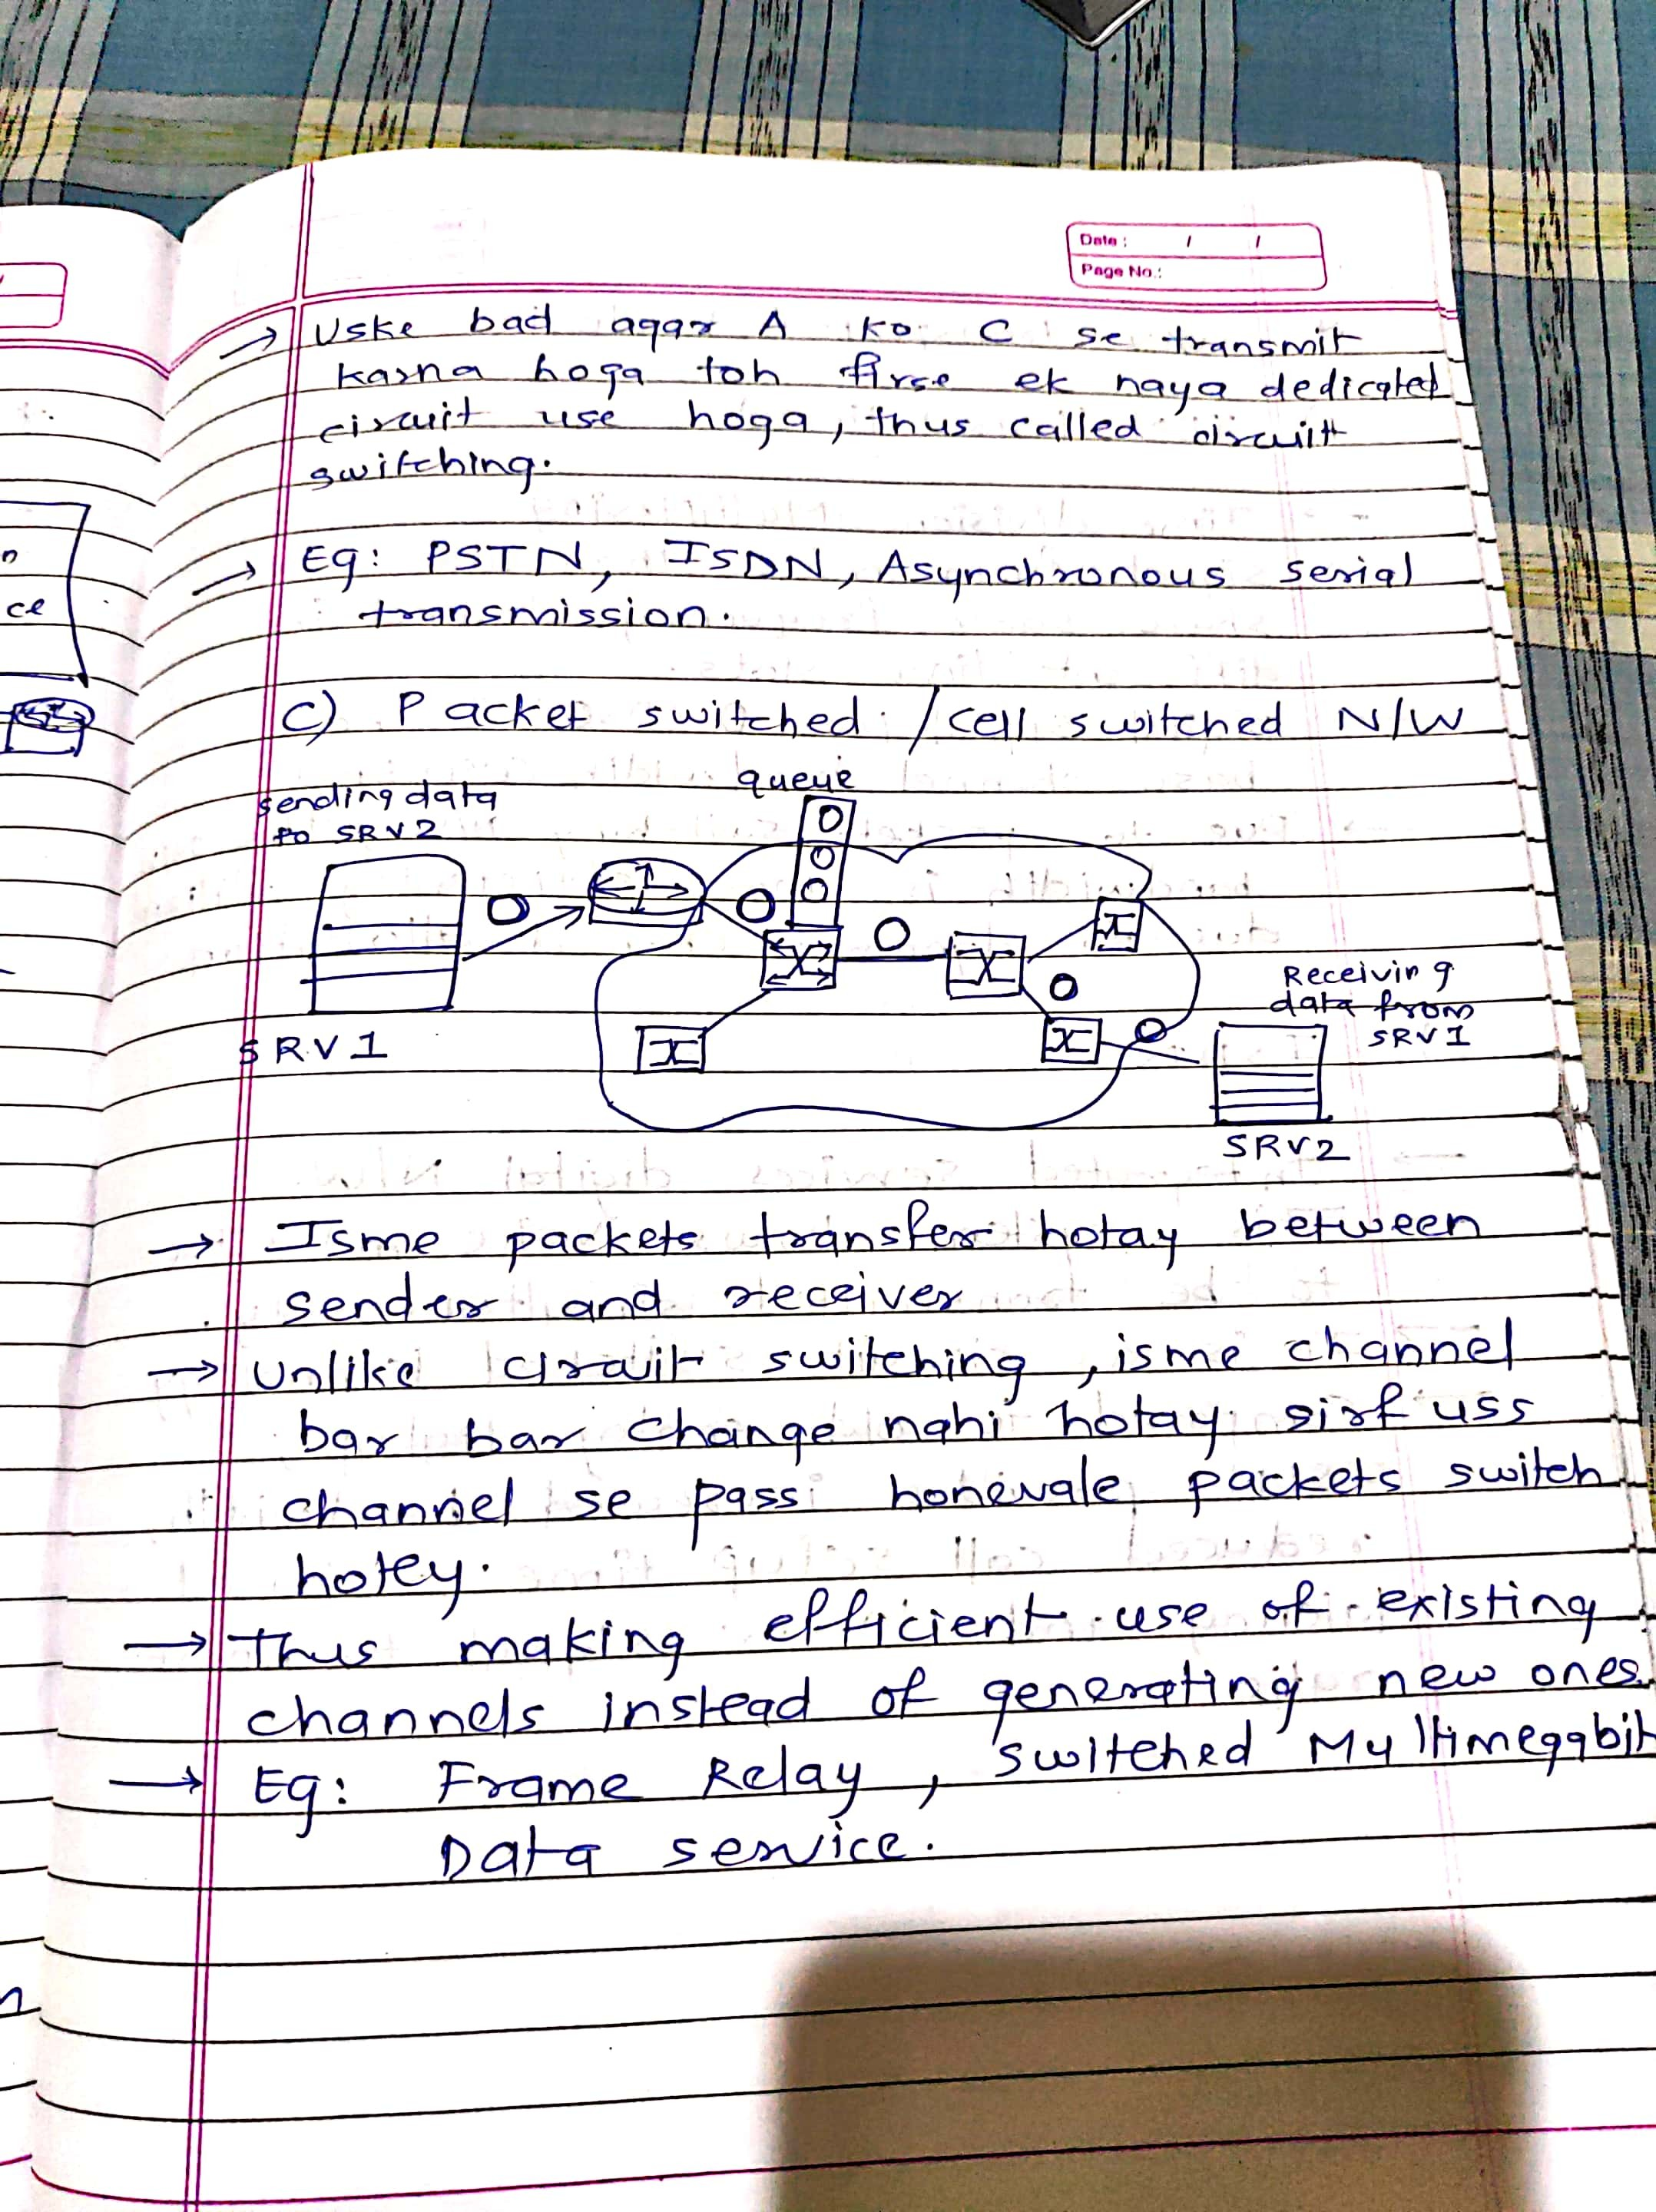 Date : / /
Page No.:
→ Uske bad agar A ko C se transmit
karna hoga toh firse ek naya dedicated
circuit use hoga, thus called circuit
switching.
→ Eg: PSTN, ISDN, Asynchronous serial
transmission.
c) Packet switched / cell switched N/W
queue
sending data
to SRV2
Receiving
data from
SRV1
SRV1
SRV2
→ Isme packets transfer hotay between
sender and receiver
→ Unlike circuit switching, isme channel
bar bar change nahi hotay sirf uss
channel se pass honevale packets switch
hotey.
→ Thus making efficient use of existing
channels instead of generating new ones.
→ Eg: Frame Relay, switched Multimegabit
Data service.
ce